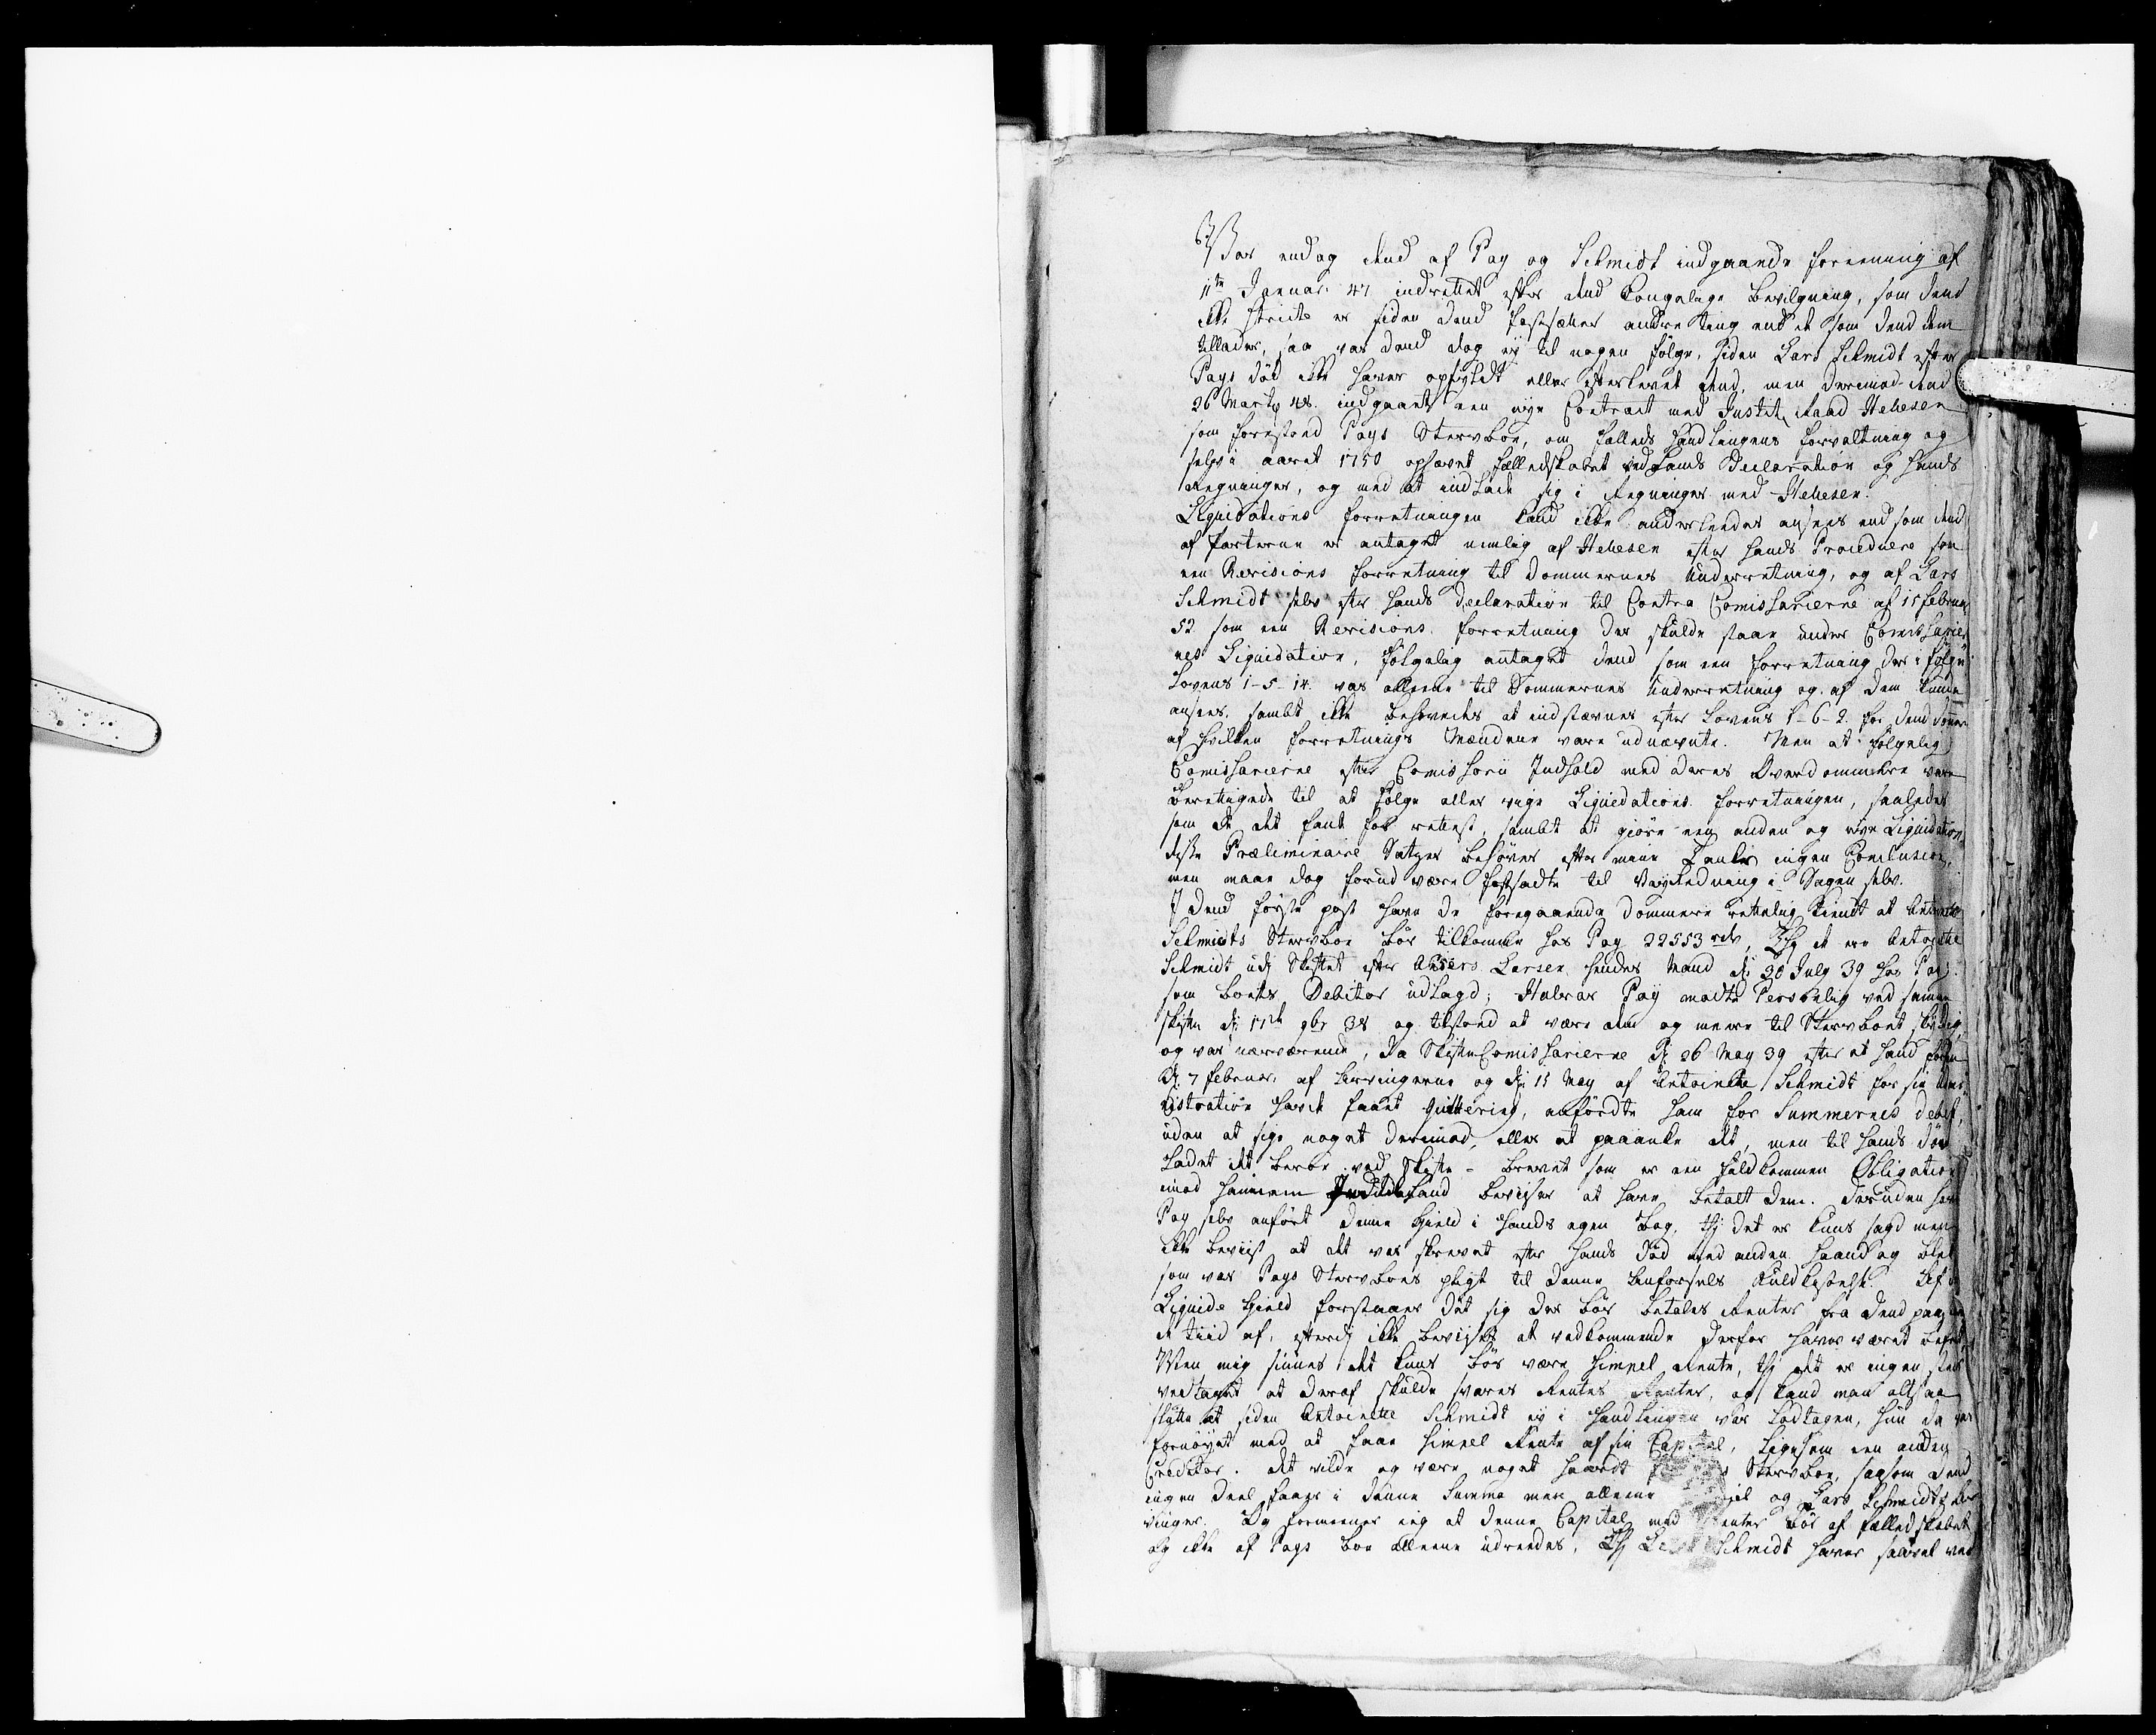 Var endog dend af Pay og Schmidt indgaaende foreening af
11te Januar: 47 indrettet efter dend Kongelige bevilgning, som dend
ikke stricte er siden dend fastsætter andre ting end de som dend dem
tillader, saa var dend dog ey til nogen følge, siden Lars Schmidt efter
Pays død ikke haver opfyldt eller efterlevet dend, men derimod dend
26 Marty 48. indgaaet een nye Contract med Justitz Raad Heltzen
som forestoed Pays Stervboe, om fælleds Handlingens forvaltning og
selv i aaret 1750 ophævet fælledskabet ved hands Declaration og hands
Regninger, og med at indlade sig i Regninger med Heltzen.
Liquidations forretningen kand ikke anderleedes ansees end som dend
af Parterne er antaget nemlig af Heltzen efter hands Procedure som
een Revisions forretning til Dommernes Underretning, og af Lars
Schmidt selv efter hands declaration til Contra Comissarierne af 15 Februar
52 som een Revisions forretning der skulde staae under Comissarier
nes Liquidation, følgelig antaget dend som een forretning der i følge
Lovens 1-5-14. var alleene til Dommernes Underretning og af dem kunde
ansees. samt ikke behøvedes at indstævnes efter Lovens 1-6-2. for dend
af hvilken forretnings Mændene vare udnævnte. Men at følgelig
Comissarierne efter Comissorii Indhold med deres Overdommere vare
berettigede til at følge eller vige Liquidations forretningen, saaledes
som de det fant for rettest, samt at giøre een anden og nye Liquidation,
disse Præliminaire Satzer behøver efter miine Tanker ingen Conclusion,
men maae dog forud være fastsadte til Veyledning i Sagen selv.
I dend første post have de foregaaende Dommere rettelig kiendt at Antoinette
Schmidts Stervboe bør tilkomme hos Pay 22553 rdr, Thj de ere Antoinette
Schmidt udj Skiftet efter Anders Larsen hendes Mand dj 30 July 39 hos Pay
som boets Debitor udlagd; Halvor Pay mødte Personlig ved samme
skifte dj 11te 9br 38 og tilstoed at være dem og meere til Stervboet skyldig
og var nærværende, da Skifte Comissarierne dj 26 May 39 efter at hand
dj 7 Februar: af Arvingerne og dj 15 May af Antoinette Schmidt for sin
nistration havde faaet Quittering, anførdte ham for Summernes debet,
uden at sige noget derimod, eller at paaanke det, men til hands død
ladet det beroe ved Skifte-brevet som er een fuldkommen Obligation
imod hannem Indtil hand beviiser at have betalt dem. Desuden har
Pay selv anført denne Gield i hands egen bog, thj det er kuns sagd men
ikke beviist at det var skrevet efter hands død med anden haand og blek
som var Pays Stervboes pligt til denne Anførsels Kuldkastelse. Af
Liquide Gield forstaaer det sig der bør betales Renter fra dend
de tiid af, efterdj ikke beviises at vedkommende derfor haver været
Men mig siunes det kuns bør være Simpel Rente, thj det er ingen sted
vedtaget at deraf skulde svares Rentes Renter, og kand man altsaa
slutte at siden Antoinette Schmidt ey i Handlingen var Lodtagen, hun da var
fornøyet med at faae Simpel Rente af sin Capital, ligesom een anden
Creditor. det vilde og være noget haardt Stervboe, saasom dend
ingen deel faaer i denne Summa men alleene og Lars Schmidts Ar
vinger. Og formeener ieg at denne Capital med Renter bør af fælledskabet
og ikke af Pays boe alleene udreedes, Thj Lars Schmidt haver saavel ved